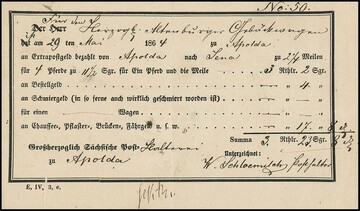 No: 50.
Für den
Der Herr Herzogl. Altenburger Gepäckwagen
hat am 29 ten Mai 1864 zu Apolda
an Extrapostgeld bezahlt von Apolda nach Jena 2 1/4 Meilen
für 4 Pferde zu 11 1/2 Sgr. für Ein Pferd und die Meile 3 Rthlr. 2 Sgr.
an Bestellgeld „ 4 „
an Schmiergeld (in so ferne auch wirklich geschmiert worden ist)
für einen Wagen
an Chaussee-, Pflaster-, Brücken-, Fährgeld u. s. w. 17.
Summa 3. Rthlr. 23 Sgr.
Großherzoglich Sächsische Post-Halterei
zu Apolda
Unterzeichnet:
Posthalter
E, IV, 3, c.